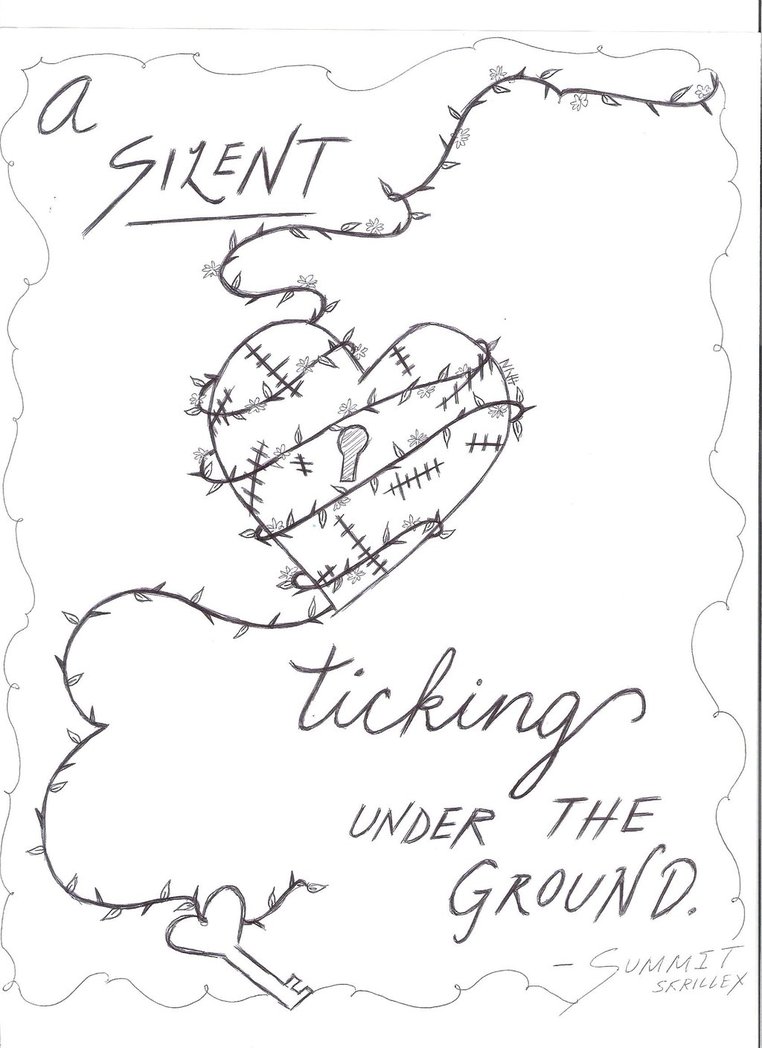 a
SILENT
ticking
UNDER THE
GROUND.
- SUMMIT
SKRILLEX